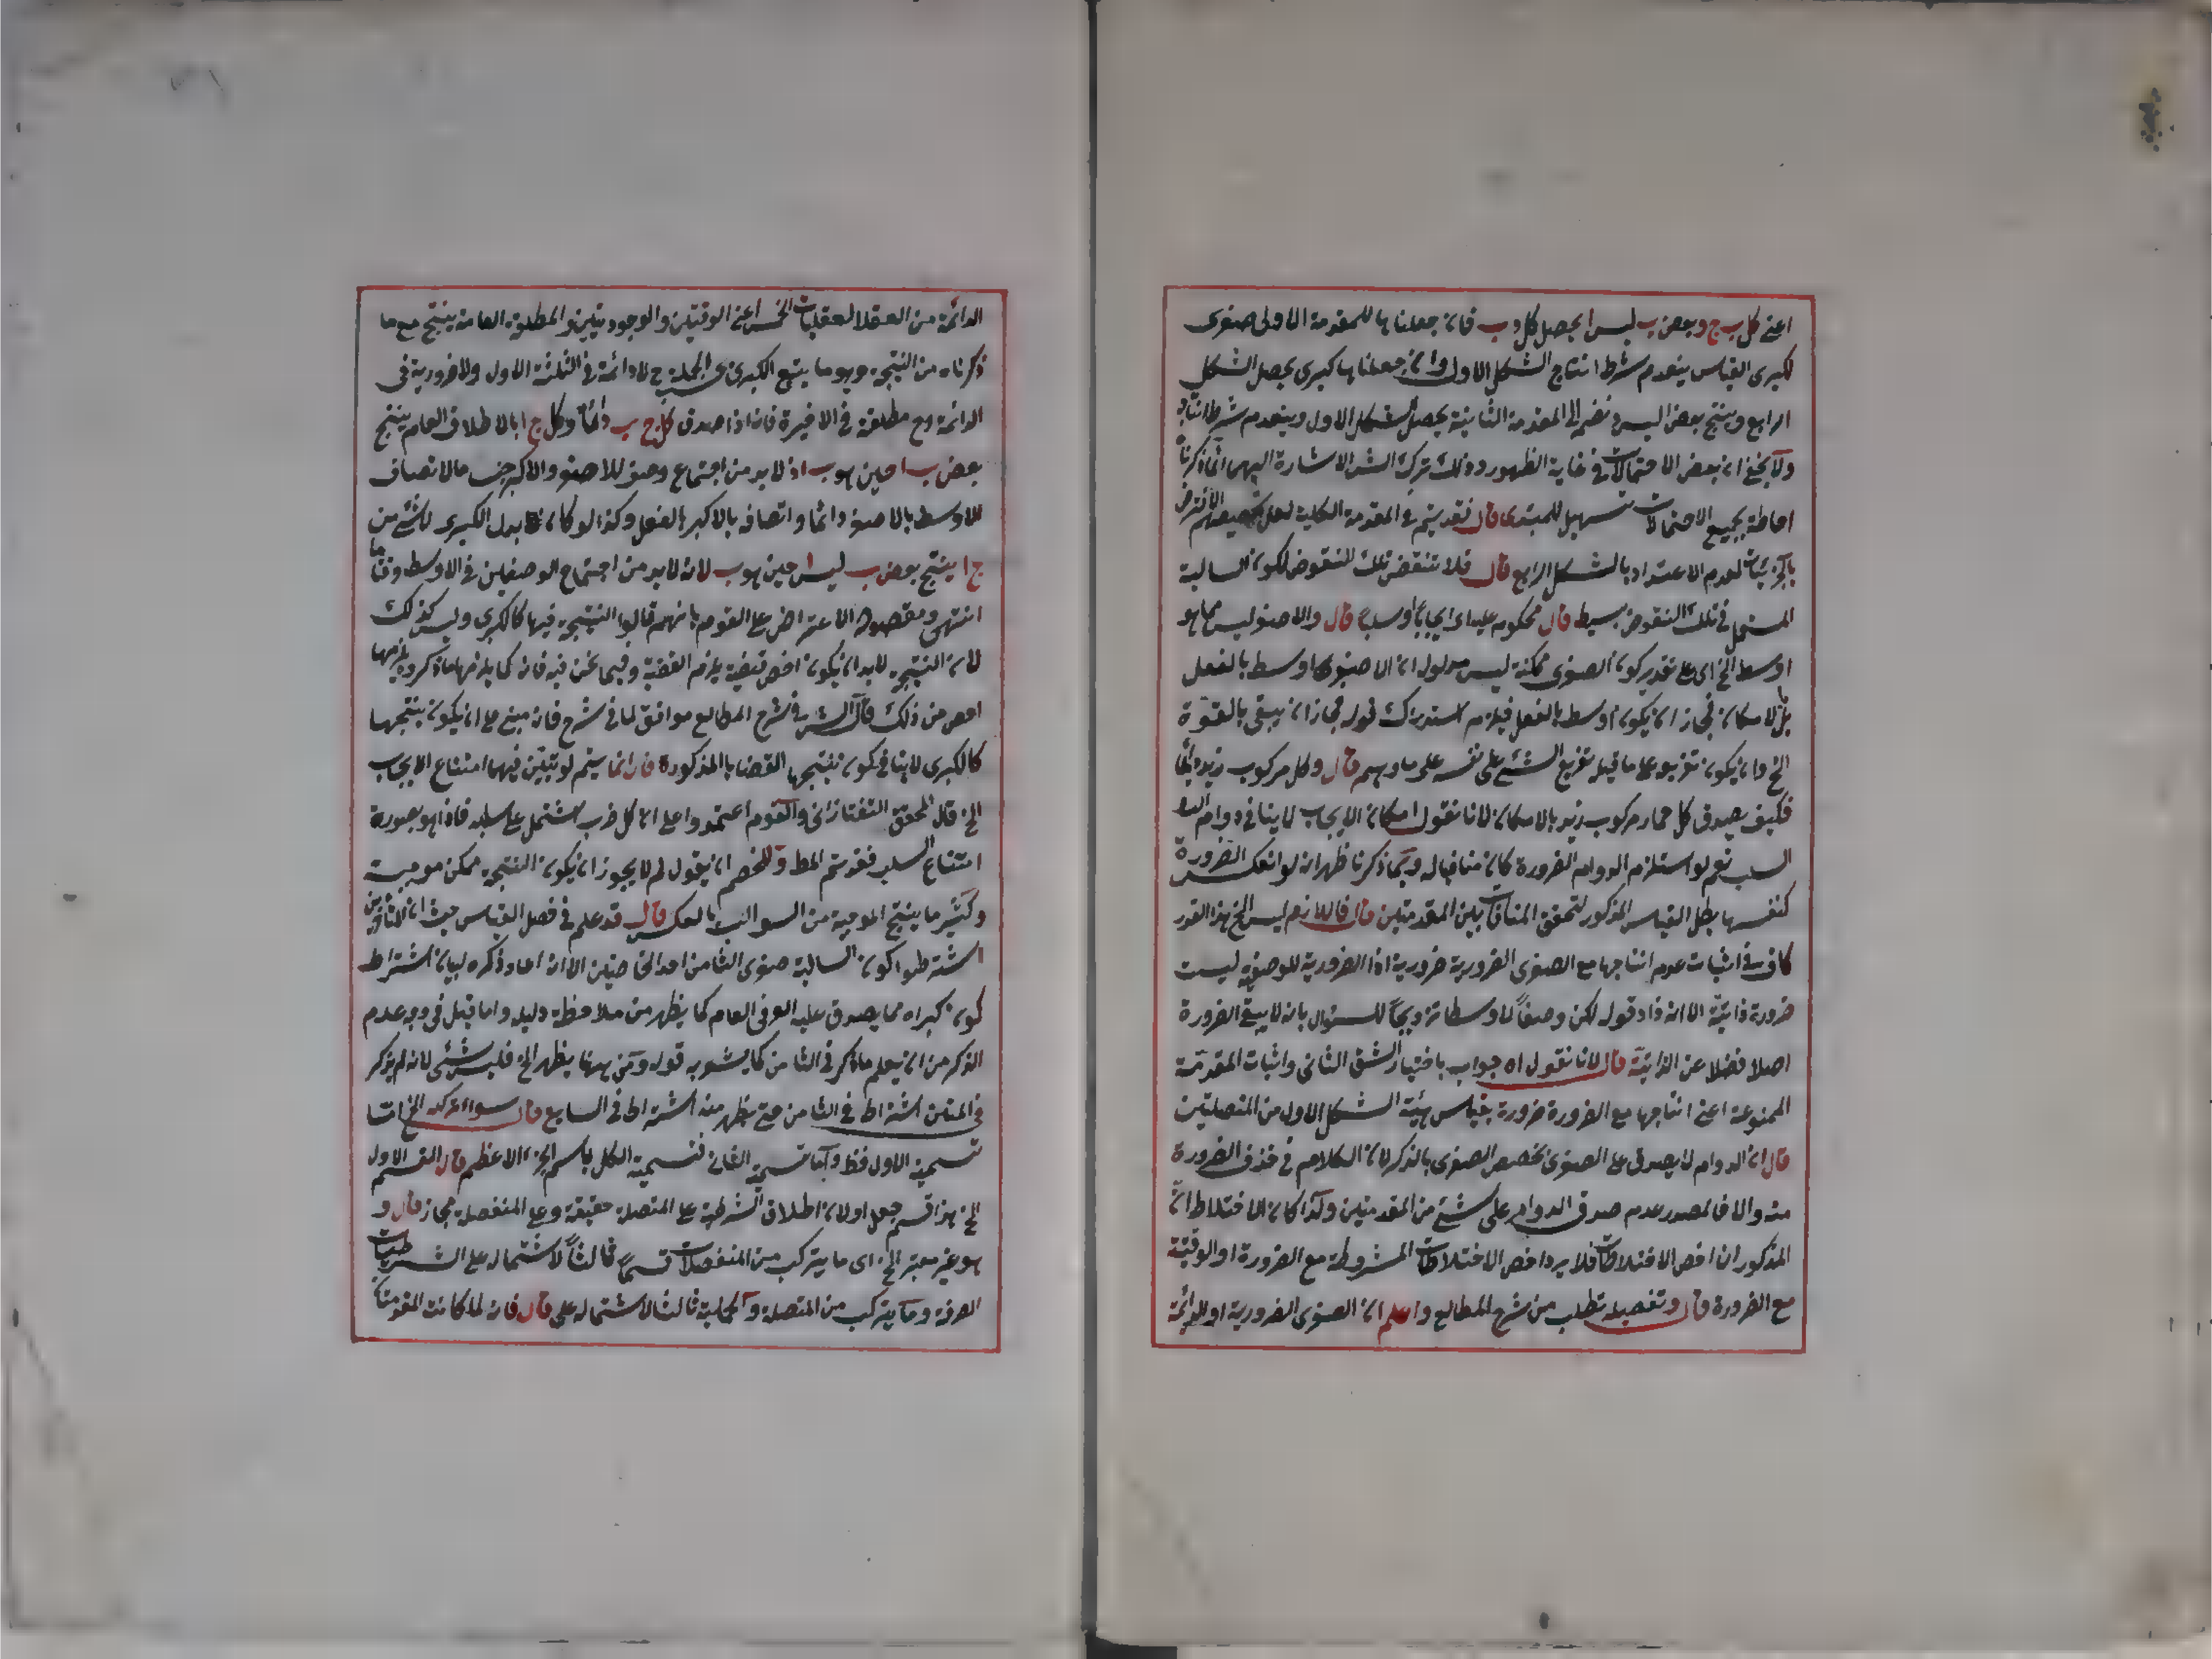 اعنى كل ب ج وبعض ب ليس ا يحصل كل د ب فان جعلناها للمقدمة الاولى صغرى
لكبرى القياس ينعدم شرط انتاج الشكل الاول وان جعلناها كبرى يحصل الشكل
الرابع وينتج بعض اليس د نضم الى المقدمة الثانية يحصل شكل الاول وينعدم شرط انتاج
ولا يخفى ان بعض الاحتمالات في غاية الظهور ولذلك ترك الشر الاشارة اليها انما ذكرنا
احاطة بجميع الاحتمالات تسهيل للمبتدى قال فقد يتم في المقدمة الكلية لعل تخصيصهم الافتراض
بالجزئيات لعدم الاعتداد بالشكل الرابع قال فلا تنتقض تلك النقوض لكون السالبة
المستعمل في تلك النقوض بسيط قال محكوم عليه اى ايجابا او سلبا قال والاصغر ليس مما هو
اوسط الخ اى على تقدير كون الصغرى ممكنة ليس مدلول ان الاصغر اوسط بالفعل
بل بالامكان فجاز ان يكون اوسط بالفعل فيلزم استدراك قوله فجاز ان يبقى بالقوة
الخ وان يكون تفريع ما قبله تفريع الشئ على نفسه على ما وهم قال وكل مركوب زيد
فكيف يصدق كل حمار مركوب زيد بالامكان لانا نقول امكان الايجاب لا ينافي دوام
السلب نعم لو استلزم الدوام الضرورة كان منافيا له وبما ذكرنا ظهر ان لو انعكس الضرورة
كنفسها بطل القياس المذكور لتحقق المنافات بين المقدمتين قال فاللازم ليس الخ هذا القدر
كاف في اثبات عدم انتاجها مع الصغرى الضرورية ضرورية اذا الضرورية الوصفية ليست
ضرورة ذاتية الا انه زاد قوله لكن وصفا لاوسط ترويجا للسؤال بانه لا يبقى الضرورة
اصلا فضلا عن الذاتية قال لانا نقول اه جواب باختيار الشق الثانى واثبات المقدمة
الممنوعة اعنى انتاجها مع الضرورة ضرورة بقياس هيئة الشكل الاول من المتصلتين
قال ان الدوام لا يصدق على الصغرى تخصيص الصغرى بالذكر لان الكلام في حذف الضرورة
منه والا فالمصدر عدم صدق الدوام على شئ من المقدمتين ولذا كان الاختلاط
المذكور ان اخص الاختلاطات فلا يرد اخص الاختلاطات المشروطة مع الضرورة او الوقتية
مع الضرورة قال وتفصيله تطلب من شرح المطالع واعلم ان الصغرى الضرورية او الدائمة
الدائمة من العقلا العقليات الخمس اعنى الوقتيتين والوجوديتين والمطلقة العامة ينتج مع ما
ذكرناه من النتيجة وهو ما يتبع الكبرى في الجملة ح لا دائمة في الثلثة الاول ولا ضرورية في
الدائمة مع مطلقة في الاخيرة فان اذا صدق كل ج ب دائما وكل ج ا بالاطلاق العام ينتج
بعض ب ا حين هو ب اذ لا بد من اجتماع وصفى الاصغر والاكبر حيث مالاتصاف
الاوسط بالاصغر دائما واتصافه بالاكبر بالفعل وكذا لو كان بدل الكبرى لا شئ من
ج ا ينتج بعض ب ليس ا حين هو ب لانه لا بد من اجتماع الوصفين في الاوسط وقتا ما
انتهى ومقصوده الاعتراض على القوم بانهم قالوا النتيجة فيها كالكبرى وليس كذلك
لان النتيجة لا بد ان يكون اخص قضية يلزم القضية وفيما نحن فيه فانه كما يلزمها ما ذكروه يلزمها
اخص من ذلك قال الشر في شرح المطالع موافق لما في شرح فان مبنى على ان يكون نتيجتها
كالكبرى لا ينافي كون نتيجتها القضايا المذكورة قال انما يتم لو تبين فيها امتناع الايجاب
الخ قال المحقق التفتازانى والقوم اعتمدوا على ان كل ضرب اشتمل على سلب فانما هو بصورة
امتناع السلب فقد تم المط وللخصم ان يقول لم لا يجوز ان يكون النتيجة ممكن موجبة
وكثير ما ينتج الموجبة من السوالب بالعكس قال قد علم في فصل القياس حيث ان
اشترطوا كون السالبة صغرى الثامن احد الخاصتين الا انه اعاد ذكره لبيان اشتراط
كون كبراه مما يصدق عليه العرفى العام كما يظهر من ملاحظة دليله واما قيل في وجه عدم
الذكر من ان يعلم ما ذكر في الثامن كما يشعر به قوله ومن ههنا يظهر الخ فليس شئ لانه لم يذكر
في المتن اشتراط في الثامن حتى يظهر منه اشتراط في السابع قال سواء تركب الخ اما
تسمية الاول فظ واما تسمية الثانى فتسمية الكل باسم الجزء الاعظم قال القسم الاول
الخ هذا قسم جعل اولا لان اطلاق الشرطية على المتصلة حقيقة وعلى المنفصلة مجاز قال و
هو غير معتبر الخ اى ما يتركب من المنفصلات قسما ثالثا لاشتماله على الشرطيات
الصرفة وما يتركب من المتصلة والحملية ثالثا لاشتماله على قال فان لما كانت المقدمتا